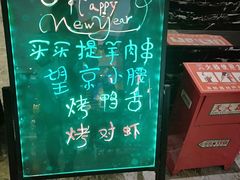 Happy
New Year
买买提羊肉串
望京小腰
烤鸭舌
烤对虾